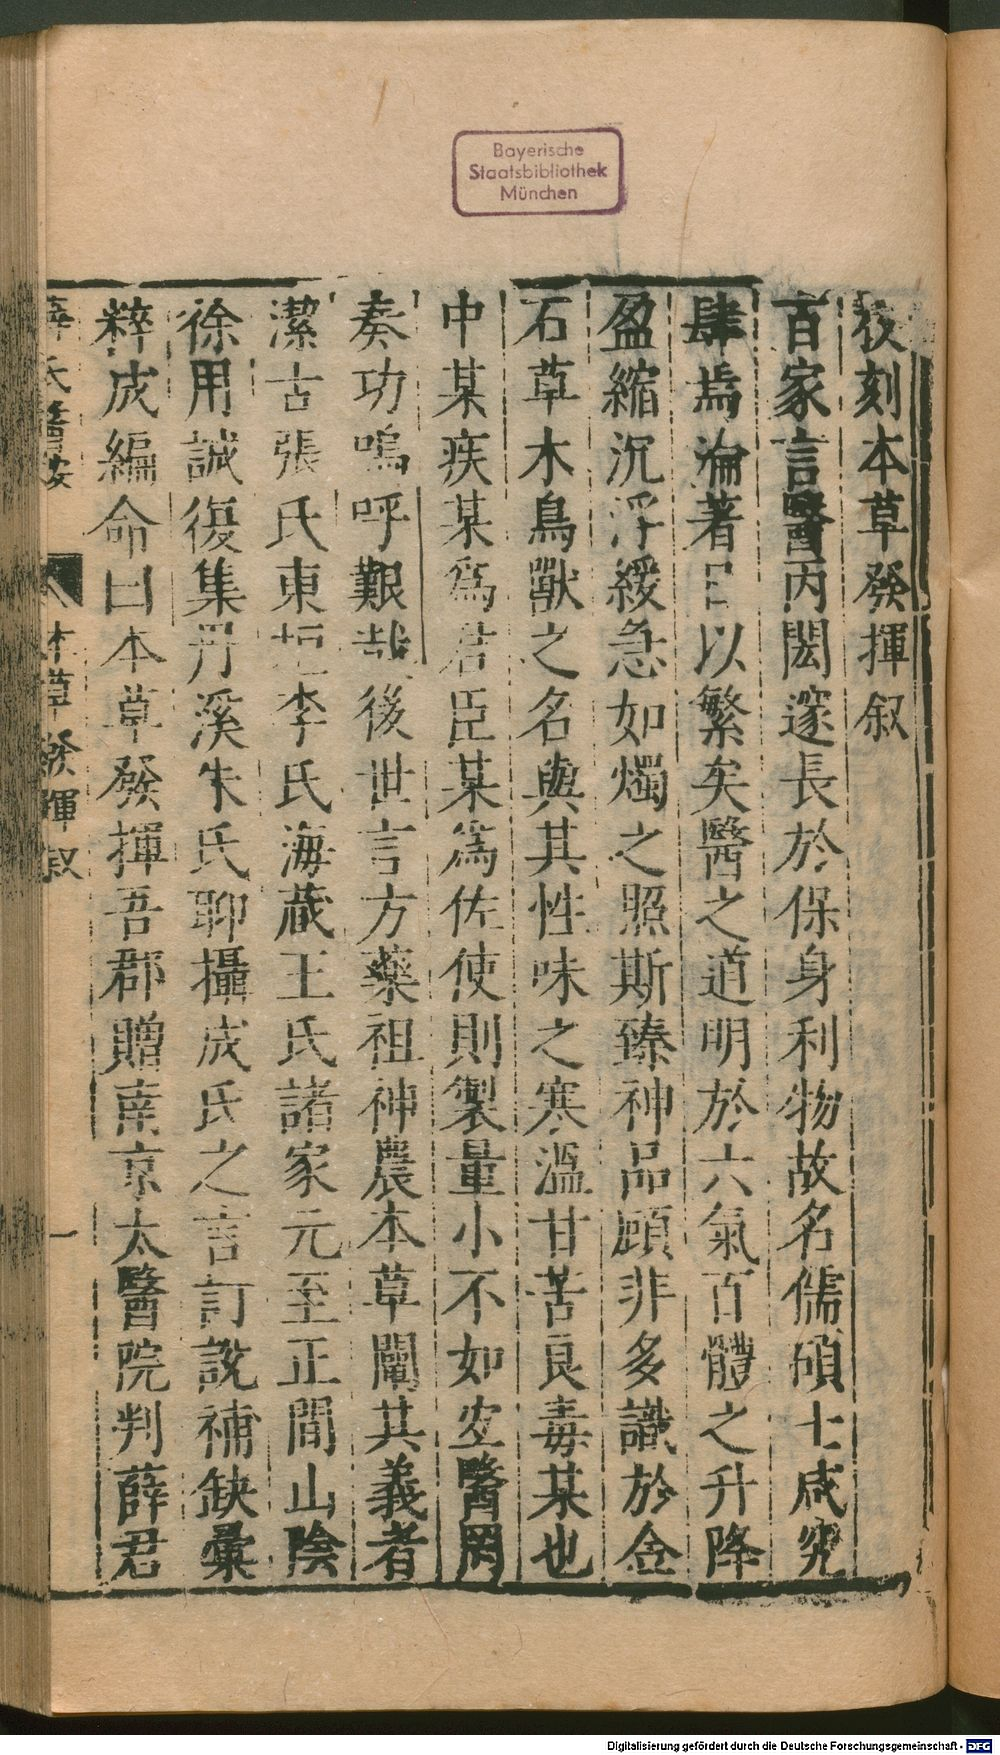 校刻本草發揮叙
百家言醫丙閎邃長於保身利物故名儒碩士咸究
肆焉淪著日以繁矣醫之道明於六氣百體之升降
盈縮沉浮緩急如燭之照斯臻神品顧非多識於金
石草木鳥獸之名與其性味之寒溫甘苦良毒某也
中某疾某為君臣某為佐使則製量小不如度醫罔
奏功嗚呼艱哉後世言方藥祖神農本草闡其義者
潔古張氏東垣李氏海藏王氏諸家元至正間山陰
徐用誠復集丹溪朱氏聊攝成氏之言訂說補缺彙
粹成編命曰本草發揮吾郡贈南京太醫院判薛君
薛氏醫按 本草發揮叙 一
Bayerische
Staatsbibliothek
München
Digitalisierung gefördert durch die Deutsche Forschungsgemeinschaft - DFG